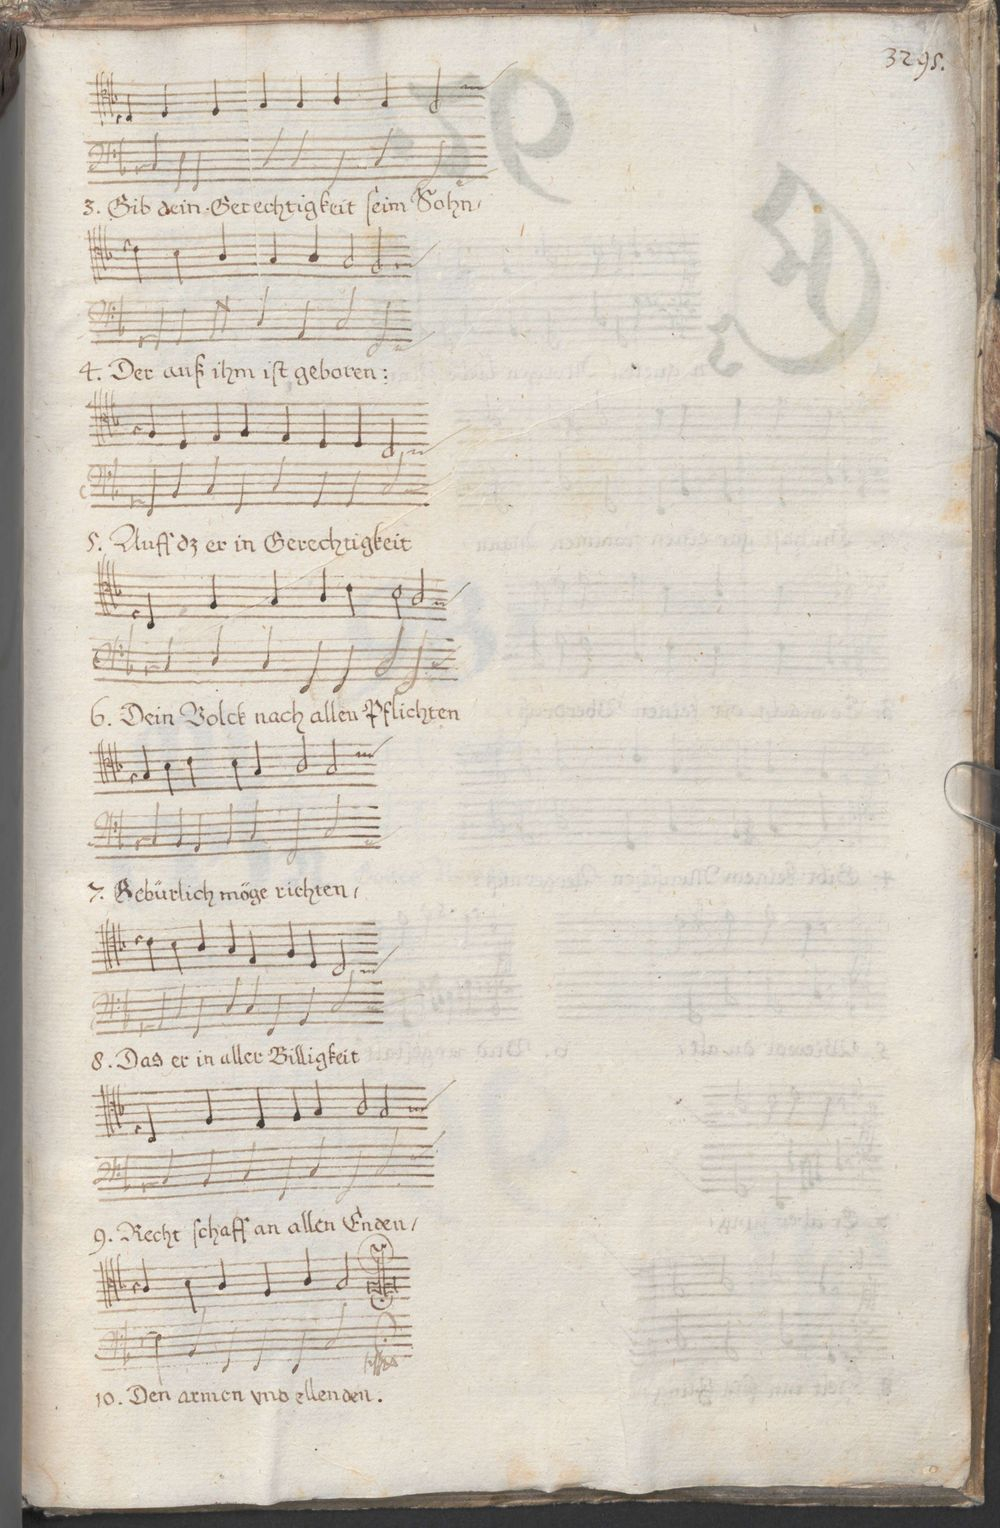 3295.
3. Gib dein Gerechtigkeit seim Sohn/
4. Der auß ihm ist geboren:
5. Auff dz er in Gerechtigkeit
6. Dein Volck nach allen Pflichten
7. Gebürlich möge richten/
8. Das er in aller Billigkeit
9. Recht schaff an allen Enden/
10. Den armen vnd ellenden.